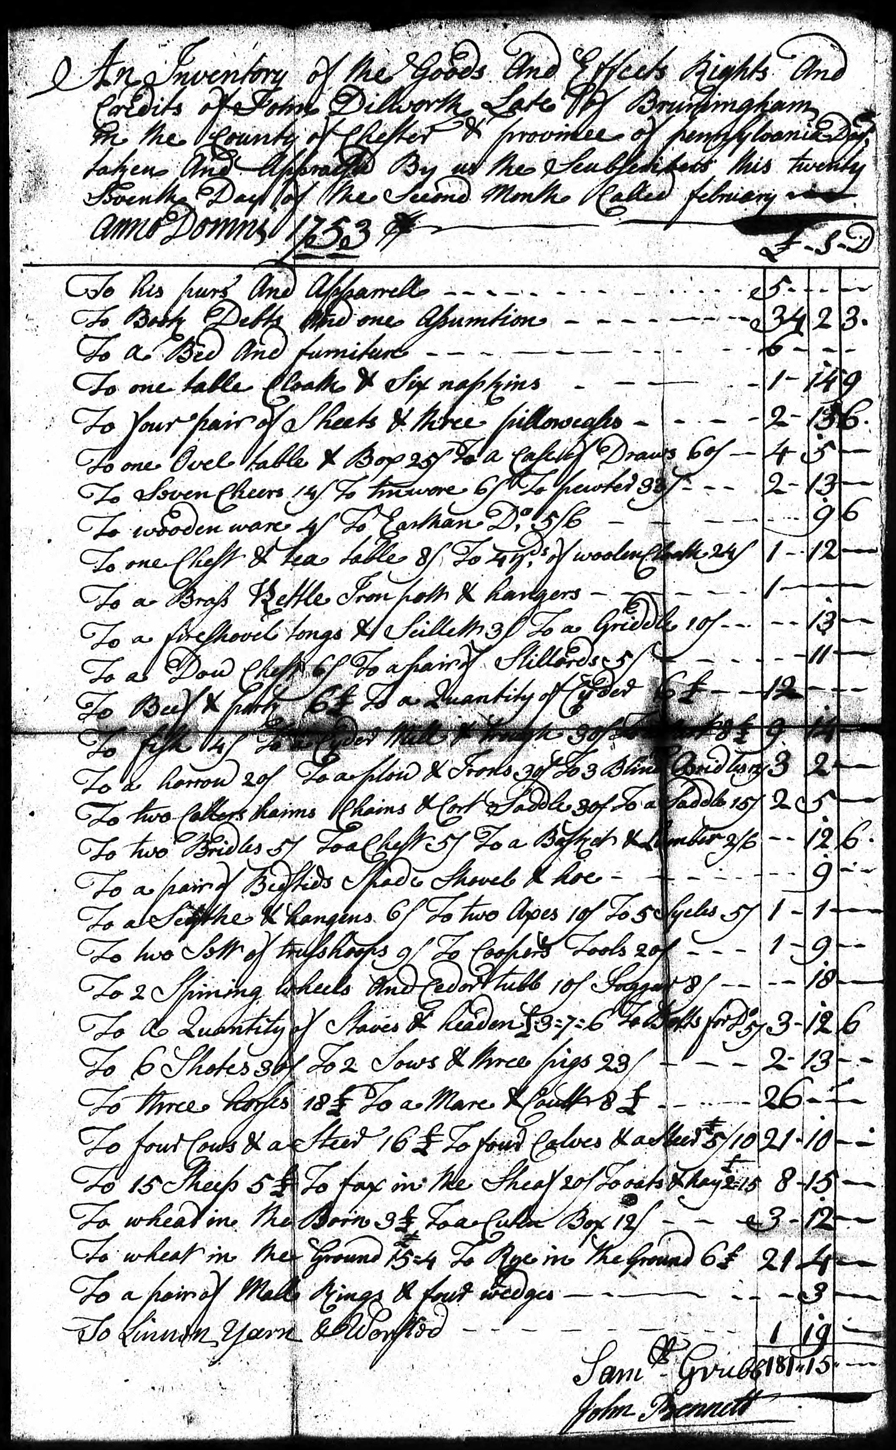 An Inventory of the Goods And Effects Rights And
Credits of John Dilworth Late of Brumingham
in the County of Chester & province of pennsylvania Decd
taken And Appraised By us the Scubscribers this twenty
Seventh Day of the Second Month Called february
Anno Domini 1753
£ - S - D
To his purs And Apparrell 5
To Book Debts And one Asumtion 34 2 3
To a Bed And furniture 6
To one table Cloath & Six napkins 1 - 14 9
To four pair of Sheets & three pillowcases 2 - 13 6
To one Ovel table & Box 25/ To a Case of Draws 60/ 4 5
To Seven Cheers 14/ To tinware 6/ To pewter 33/ 2 - 13
To wooden ware 4/ To Earthan Do. 5/6 9 6
To one Chest & tea table 8/ To 4 yds of woolen Cloath 24/ 1 - 12
To a Brass Kettle Iron pott & hangers 1
To a fireshovel tongs & Scillett 3/ To a Griddle 10/ 13
To a Dow Chest 6/ To a pair of Stillards 5/ 11
To Beef & pork 6£ To a Quantity of Cyder 6£ 12
To fish 4/ To a Cyder Mill & trough 30/ To 8£ 9 14
To a harrow 20/ To a plow & Irons 30/ To 3 Blind Bridles 3 2
To two Collers haims Chains & Cart Saddle 30/ To a Saddle 15/ 2 5
To two Bridles 5/ To a Chest 5/ To a Basket & Lumber 2/6 12 6
To a pair of Bedstids Spade Shovel & hoe 9
To a Scythe & hangens 6/ To two Axes 10/ To 5 Sycles 5/ 1 - 1
To two Sett of trusshoops 9/ To Coopers Tools 20/ 1 - 9
To 2 Spining wheels And Cedor tubb 10/ 8/ 18
To a Quantity of Staves & headen £3=7=6 To Bolts for Do 5/ 3 - 12 6
To 6 Shotes 30/ To 2 Sows & three pigs 23/ 2 - 13
To three horses 18£ To a Mare & Coult 8£ 26
To four Cows & a Steer 16£ To four Calves & a Steer £5/10 21 - 10
To 15 Sheep 5£ To flax in the Sheaf 20/ To oats & hay £2=15 8 - 15
To wheat in the Barn 3£ To a Cuten Box 12/ 3 - 12
To wheat in the Ground £15=4 To Rye in the Ground 6£ 21 4
To a pair of Mall Rings & four wedges 3
To Linnen Yarn & Worsted 1 19
Saml. Grubb 181 - 15
John Bennett